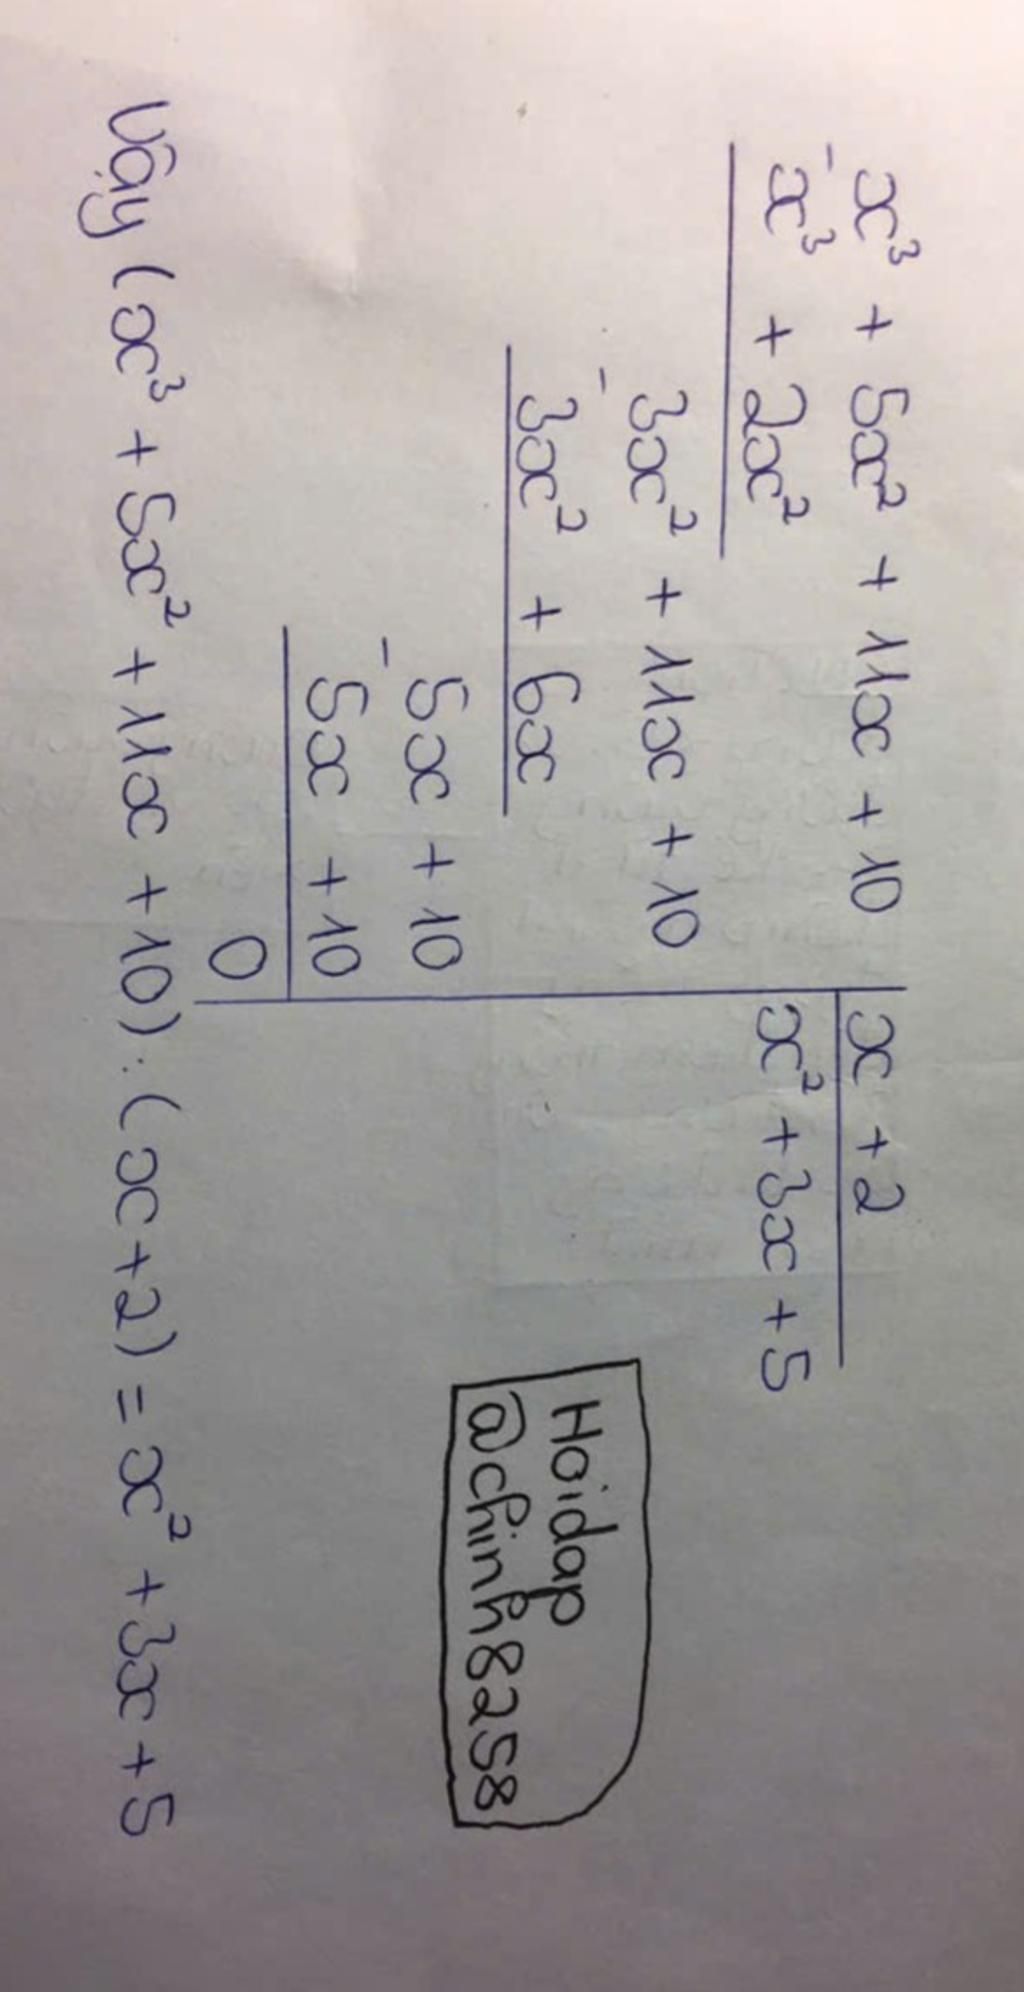 x³ + 5x² + 11x + 10 | x + 2
- x³ + 2x² | x² + 3x + 5
3x² + 11x + 10
- 3x² + 6x
5x + 10
- 5x + 10
0
Hoidap
@chinh8258
Vậy (x³ + 5x² + 11x + 10) : (x+2) = x² + 3x + 5